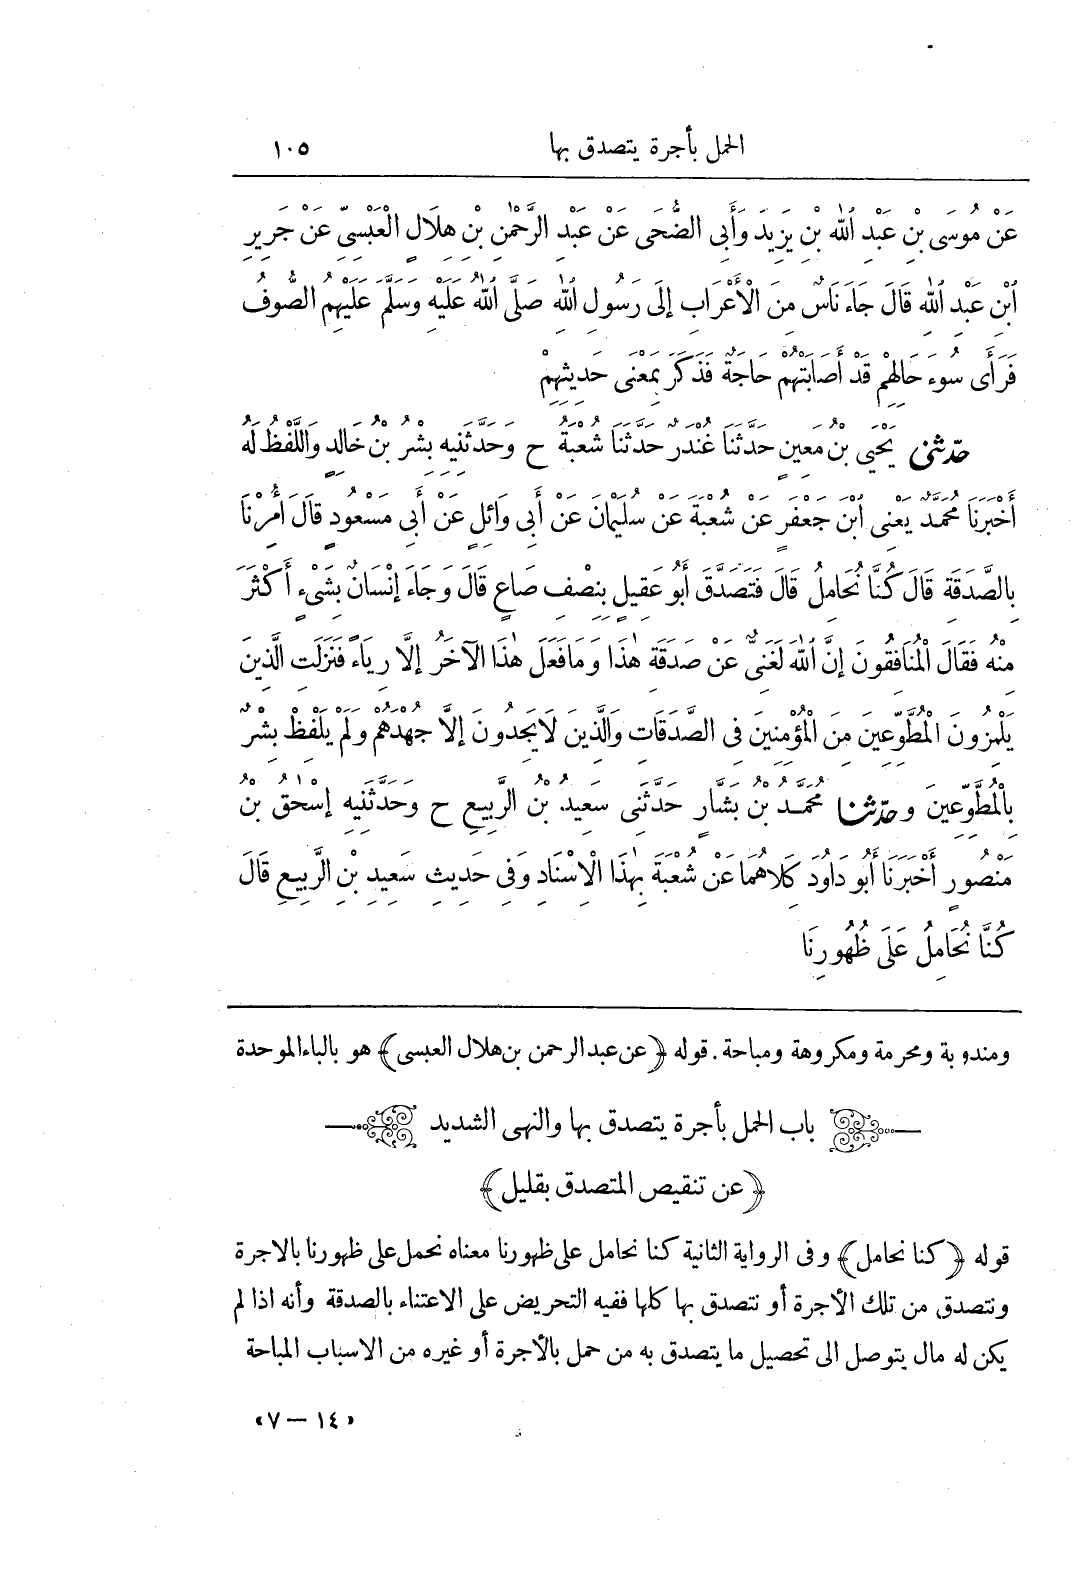 الحمل بأجرة يتصدق بها ١٠٥
عَنْ مُوسَى بْنِ عَبْدِ اللهِ بْنِ يَزِيدَ وَأَبِي الضُّحَى عَنْ عَبْدِ الرَّحْمٰنِ بْنِ هِلَالٍ الْعَبْسِيِّ عَنْ جَرِيرِ
ابْنِ عَبْدِ اللهِ قَالَ جَاءَ نَاسٌ مِنَ الْأَعْرَابِ إِلَى رَسُولِ اللهِ صَلَّى اللهُ عَلَيْهِ وَسَلَّمَ عَلَيْهِمُ الصُّوفُ
فَرَأَى سُوءَ حَالِهِمْ قَدْ أَصَابَتْهُمْ حَاجَةٌ فَذَكَرَ بِمَعْنَى حَدِيثِهِمْ
حَدَّثَنِي يَحْيَى بْنُ مَعِينٍ حَدَّثَنَا غُنْدَرٌ حَدَّثَنَا شُعْبَةُ ح وَحَدَّثَنِيهِ بِشْرُ بْنُ خَالِدٍ وَاللَّفْظُ لَهُ
أَخْبَرَنَا مُحَمَّدٌ يَعْنِي ابْنَ جَعْفَرٍ عَنْ شُعْبَةَ عَنْ سُلَيْمَانَ عَنْ أَبِي وَائِلٍ عَنْ أَبِي مَسْعُودٍ قَالَ أُمِرْنَا
بِالصَّدَقَةِ قَالَ كُنَّا نُحَامِلُ قَالَ فَتَصَدَّقَ أَبُو عَقِيلٍ بِنِصْفِ صَاعٍ قَالَ وَجَاءَ إِنْسَانٌ بِشَيْءٍ أَكْثَرَ
مِنْهُ فَقَالَ الْمُنَافِقُونَ إِنَّ اللهَ لَغَنِيٌّ عَنْ صَدَقَةِ هٰذَا وَمَا فَعَلَ هٰذَا الْآخَرُ إِلَّا رِيَاءً فَنَزَلَتْ الَّذِينَ
يَلْمِزُونَ الْمُطَّوِّعِينَ مِنَ الْمُؤْمِنِينَ فِي الصَّدَقَاتِ وَالَّذِينَ لَا يَجِدُونَ إِلَّا جُهْدَهُمْ وَلَمْ يَلْفِظْ بِشْرٌ
بِالْمُطَّوِّعِينَ وحَدَّثَنَا مُحَمَّدُ بْنُ بَشَّارٍ حَدَّثَنِي سَعِيدُ بْنُ الرَّبِيعِ ح وَحَدَّثَنِيهِ إِسْحٰقُ بْنُ
مَنْصُورٍ أَخْبَرَنَا أَبُو دَاوُدَ كِلَاهُمَا عَنْ شُعْبَةَ بِهٰذَا الْإِسْنَادِ وَفِي حَدِيثِ سَعِيدِ بْنِ الرَّبِيعِ قَالَ
كُنَّا نُحَامِلُ عَلَى ظُهُورِنَا
ومندوبة ومحرمة ومكروهة ومباحة . قوله ﴿عن عبد الرحمن بن هلال العبسى﴾ هو بالباء الموحدة
باب الحمل بأجرة يتصدق بها والنهى الشديد
﴿عن تنقيص المتصدق بقليل﴾
قوله ﴿كنا نحامل﴾ وفى الرواية الثانية كنا نحامل على ظهورنا معناه نحمل على ظهورنا بالاجرة
ونتصدق من تلك الأجرة أو نتصدق بها كلها ففيه التحريض على الاعتناء بالصدقة وأنه اذا لم
يكن له مال يتوصل الى تحصيل ما يتصدق به من حمل بالأجرة أو غيره من الاسباب المباحة
«١٤ — ٧»